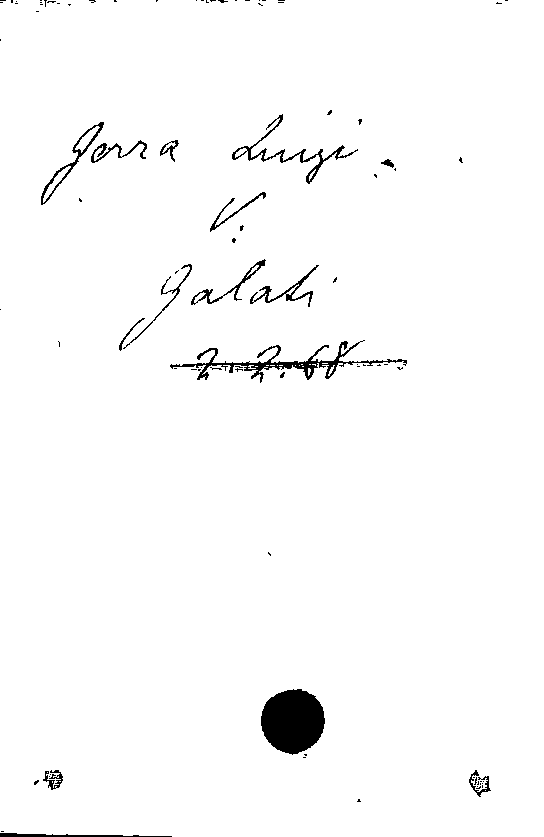 Gerra Luigi
V:
Galati
2.2.68